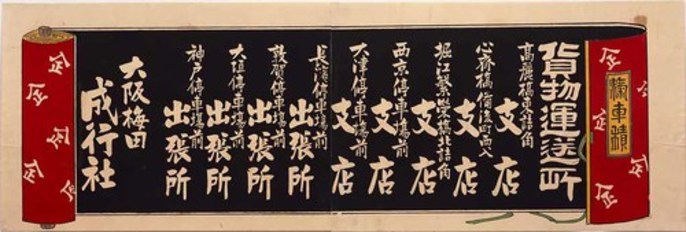 滊車積
貨物運送所
高麗橋東詰角 支店
心斎橋備後町西入 支店
堀江 橋北詰角 支店
西京停車場前 支店
大津停車場前 支店
長濱停車場前 出張所
敦賀停車場前 出張所
大垣停車場前 出張所
神戸停車場前 出張所
大阪梅田
成行社